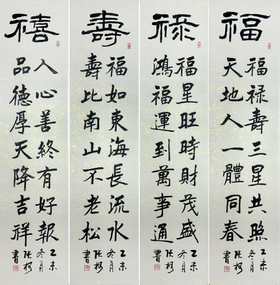 福
福祿壽三星共照
天地人一體同春
乙未
冬月
書
禄
福星旺時財茂盛
鴻福運到萬事通
乙未
冬月
書
壽
福如東海長流水
壽比南山不老松
乙未
冬月
書
禧
人心善終有好報
品德厚天降吉祥
乙未
冬月
書